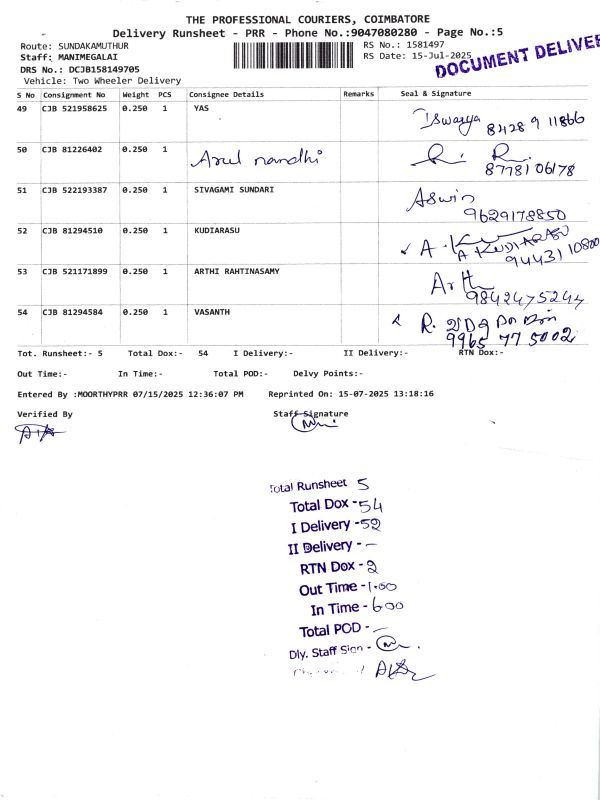 THE PROFESSIONAL COURIERS, COIMBATORE
Delivery Runsheet - PRR - Phone No.:9047080280 - Page No.:5
Route: SUNDAKAMUTHUR
RS No.: 1581497
Staff: MANIMEGALAI
RS Date: 15-Jul-2025
DOCUMENT DELIVE
DRS No.: DCJB158149705
Vehicle: Two Wheeler Delivery
S No Consignment No Weight PCS Consignee Details Remarks Seal & Signature
49 CJB 521958625 0.250 1 YAS
Iswarya 8428 9 11866
50 CJB 81226402 0.250 1 Arul nandhi
R. R.
8778106178
51 CJB 522193387 0.250 1 SIVAGAMI SUNDARI Aswin
9629178850
52 CJB 81294510 0.250 1 KUDIARASU
A KUDIARASU
94431 10800
53 CJB 521171899 0.250 1 ARTHI RAHTINASAMY Arth
9842475244
54 CJB 81294584 0.250 1 VASANTH R.
9965 77 5002
Tot. Runsheet:- 5 Total Dox:- 54 I Delivery:- II Delivery:- RTN Dox:-
Out Time:- In Time:- Total POD:- Delvy Points:-
Entered By :MOORTHYPRR 07/15/2025 12:36:07 PM Reprinted On: 15-07-2025 13:18:16
Verified By Staff Signature
Total Runsheet 5
Total Dox - 54
I Delivery - 52
II Delivery - –
RTN Dox - 2
Out Time - 1.00
In Time - 6.00
Total POD - –
Dly. Staff Sign -